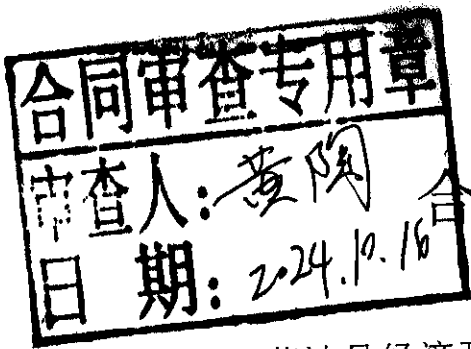 合同审查专用章
审查人：黄陶
合
日期：2024.12.16